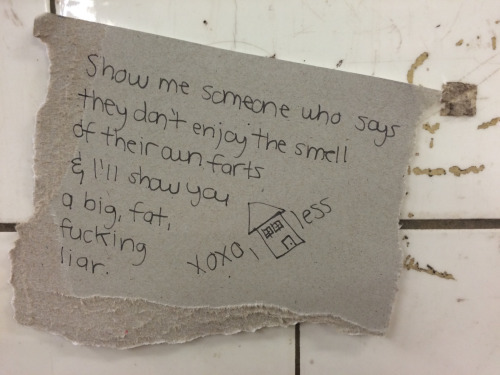 Show me someone who says
they don't enjoy the smell
of their own farts
& I'll show you
a big, fat,
fucking
liar.
xoxo,
less